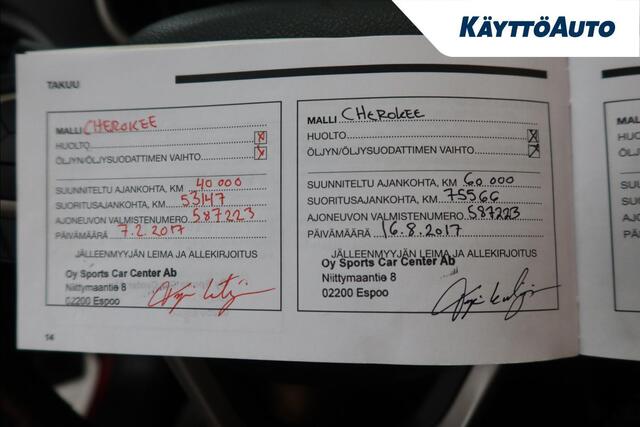 KÄYTTÖAUTO
TAKUU
MALLI CHEROKEE
HUOLTO X
ÖLJYN/ÖLJYSUODATTIMEN VAIHTO X
SUUNNITELTU AJANKOHTA, KM 40 000
SUORITUSAJANKOHTA, KM 53147
AJONEUVON VALMISTENUMERO 587223
PÄIVÄMÄÄRÄ 7.2.2017
JÄLLEENMYYJÄN LEIMA JA ALLEKIRJOITUS
Oy Sports Car Center Ab
Niittymaantie 8
02200 Espoo
14
MALLI CHEROKEE
HUOLTO X
ÖLJYN/ÖLJYSUODATTIMEN VAIHTO X
SUUNNITELTU AJANKOHTA, KM 60 000
SUORITUSAJANKOHTA, KM 75566
AJONEUVON VALMISTENUMERO 587223
PÄIVÄMÄÄRÄ 16.8.2017
JÄLLEENMYYJÄN LEIMA JA ALLEKIRJOITUS
Oy Sports Car Center Ab
Niittymaantie 8
02200 Espoo